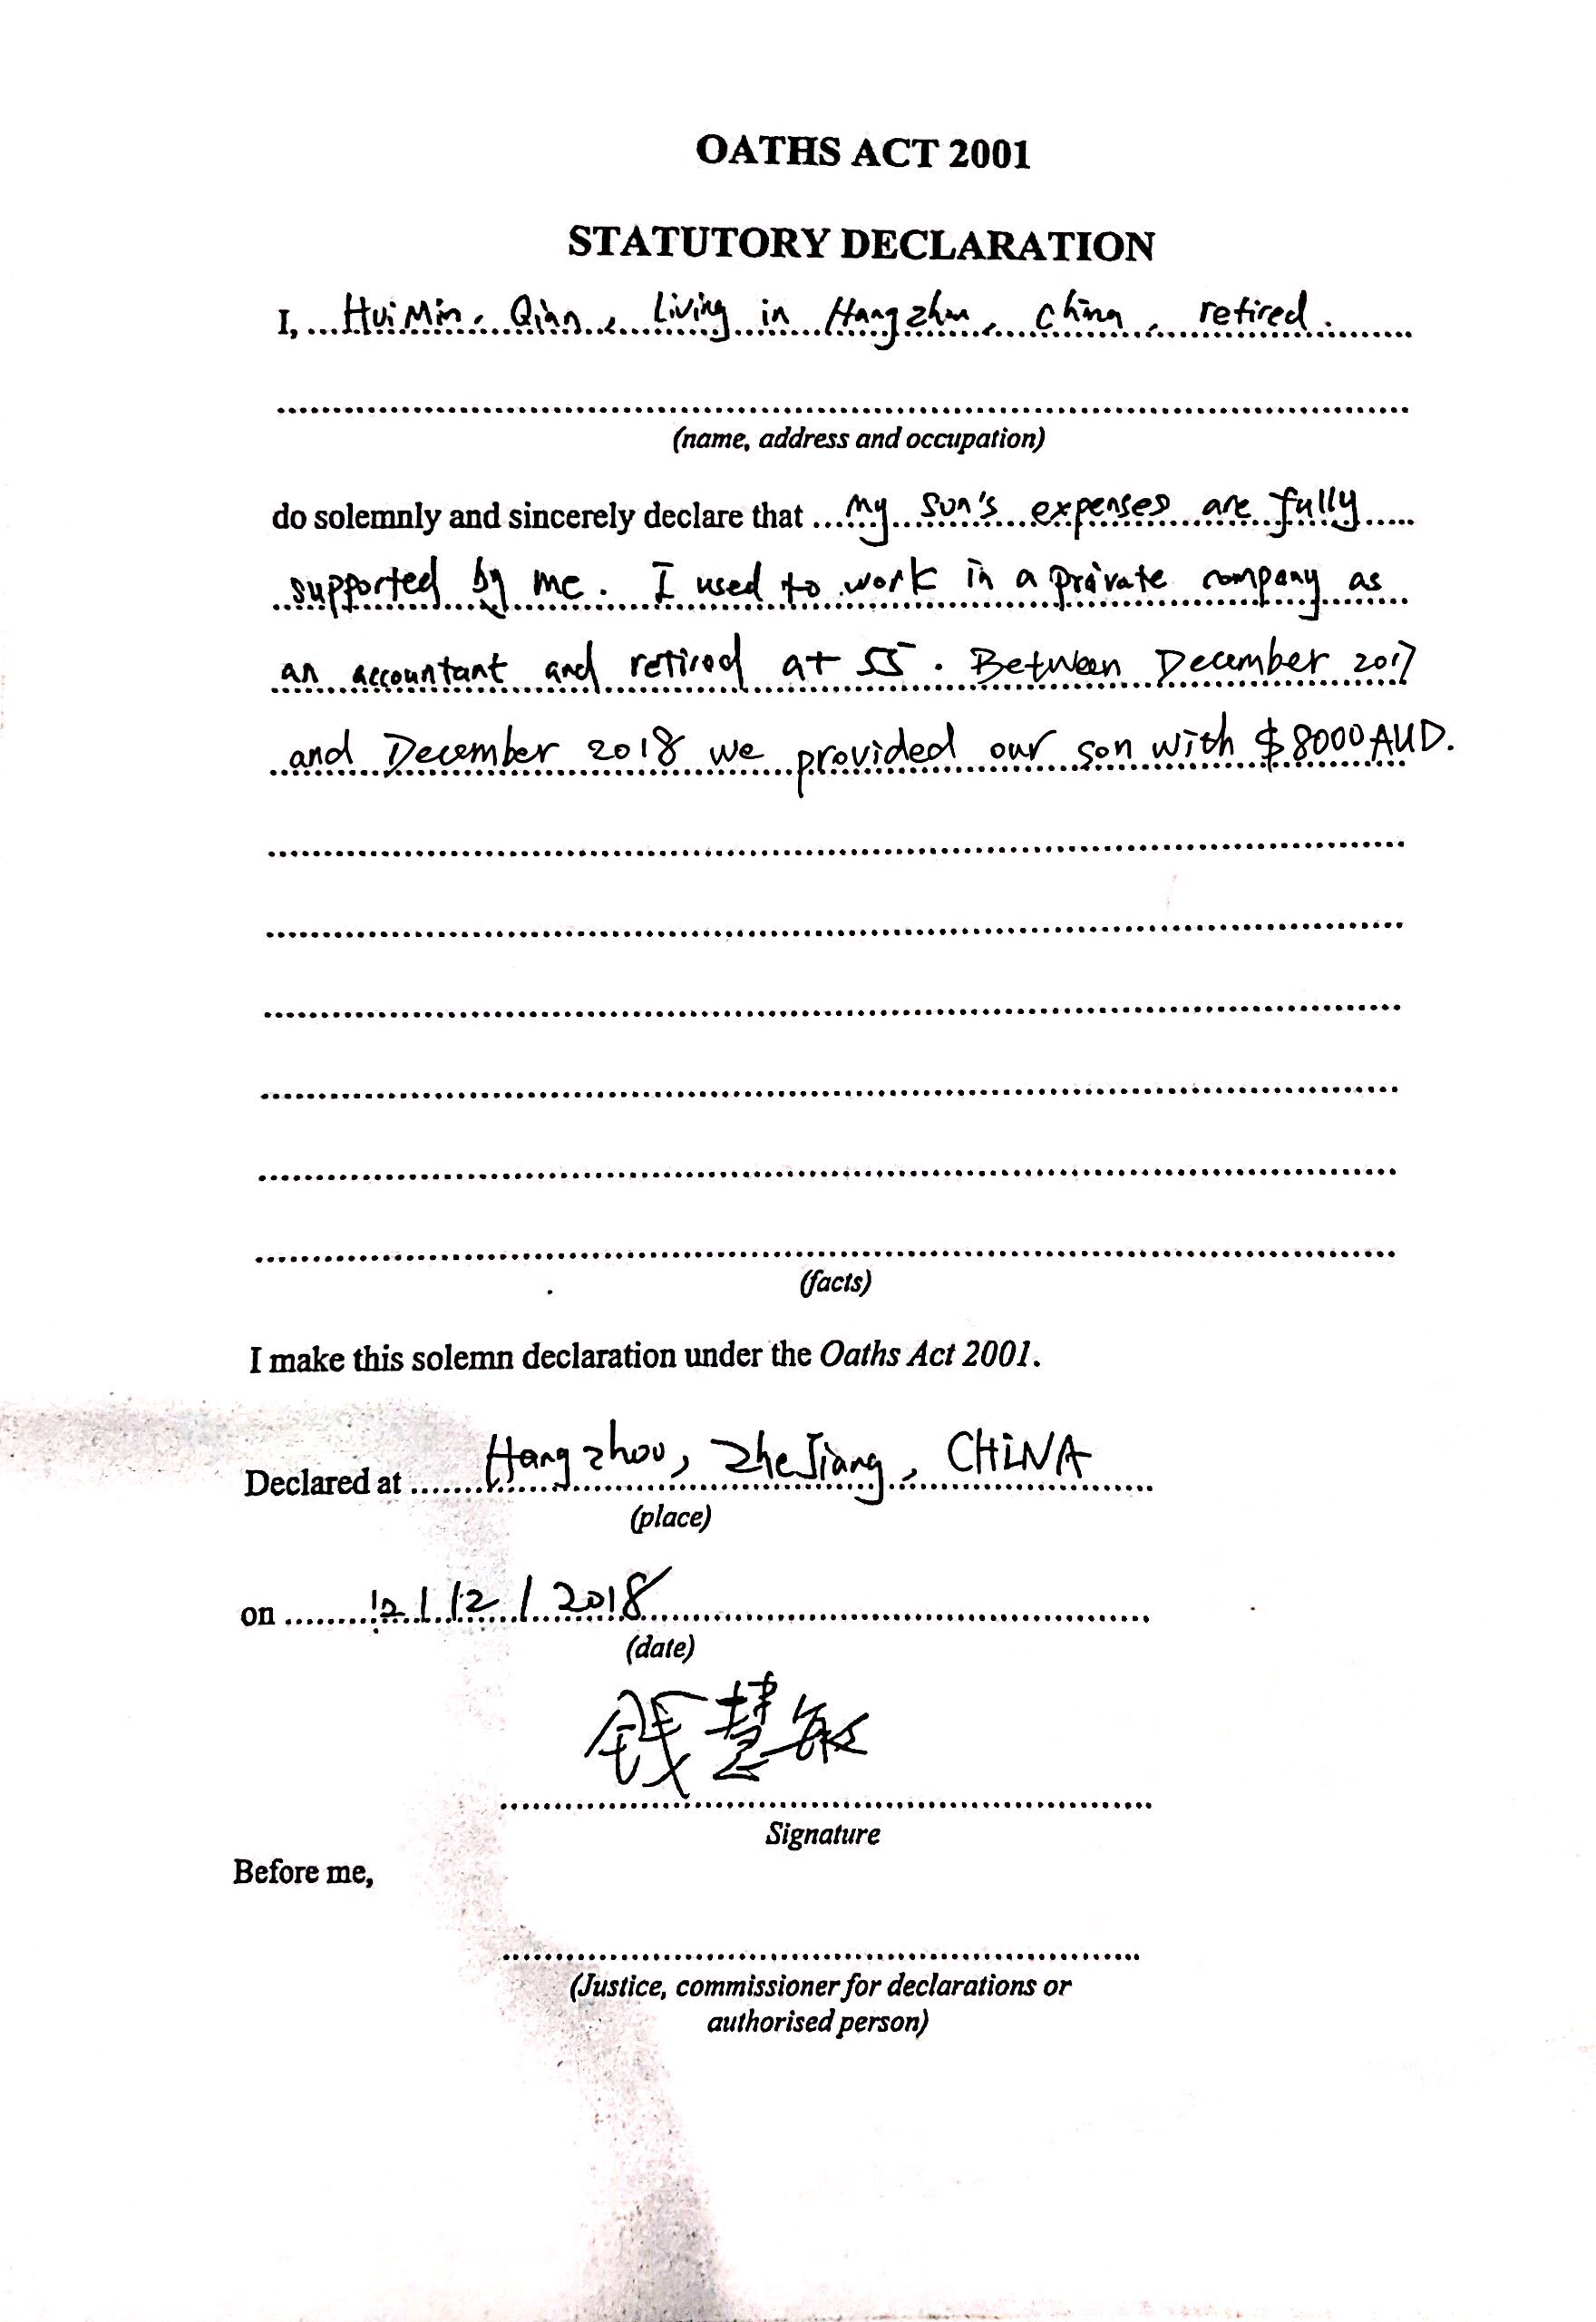 OATHS ACT 2001
STATUTORY DECLARATION
I, HuiMin, Qian, Living in Hangzhou, China, retired.
(name, address and occupation)
do solemnly and sincerely declare that my son's expenses are fully
supported by me. I used to work in a private company as
an accountant and retired at 55. Between December 2017
and December 2018 we provided our son with $8000AUD.
(facts)
I make this solemn declaration under the Oaths Act 2001.
Declared at Hangzhou, ZheJiang, CHiNA
(place)
on 12/12/2018
(date)
钱慧敏
Signature
Before me,
(Justice, commissioner for declarations or
authorised person)